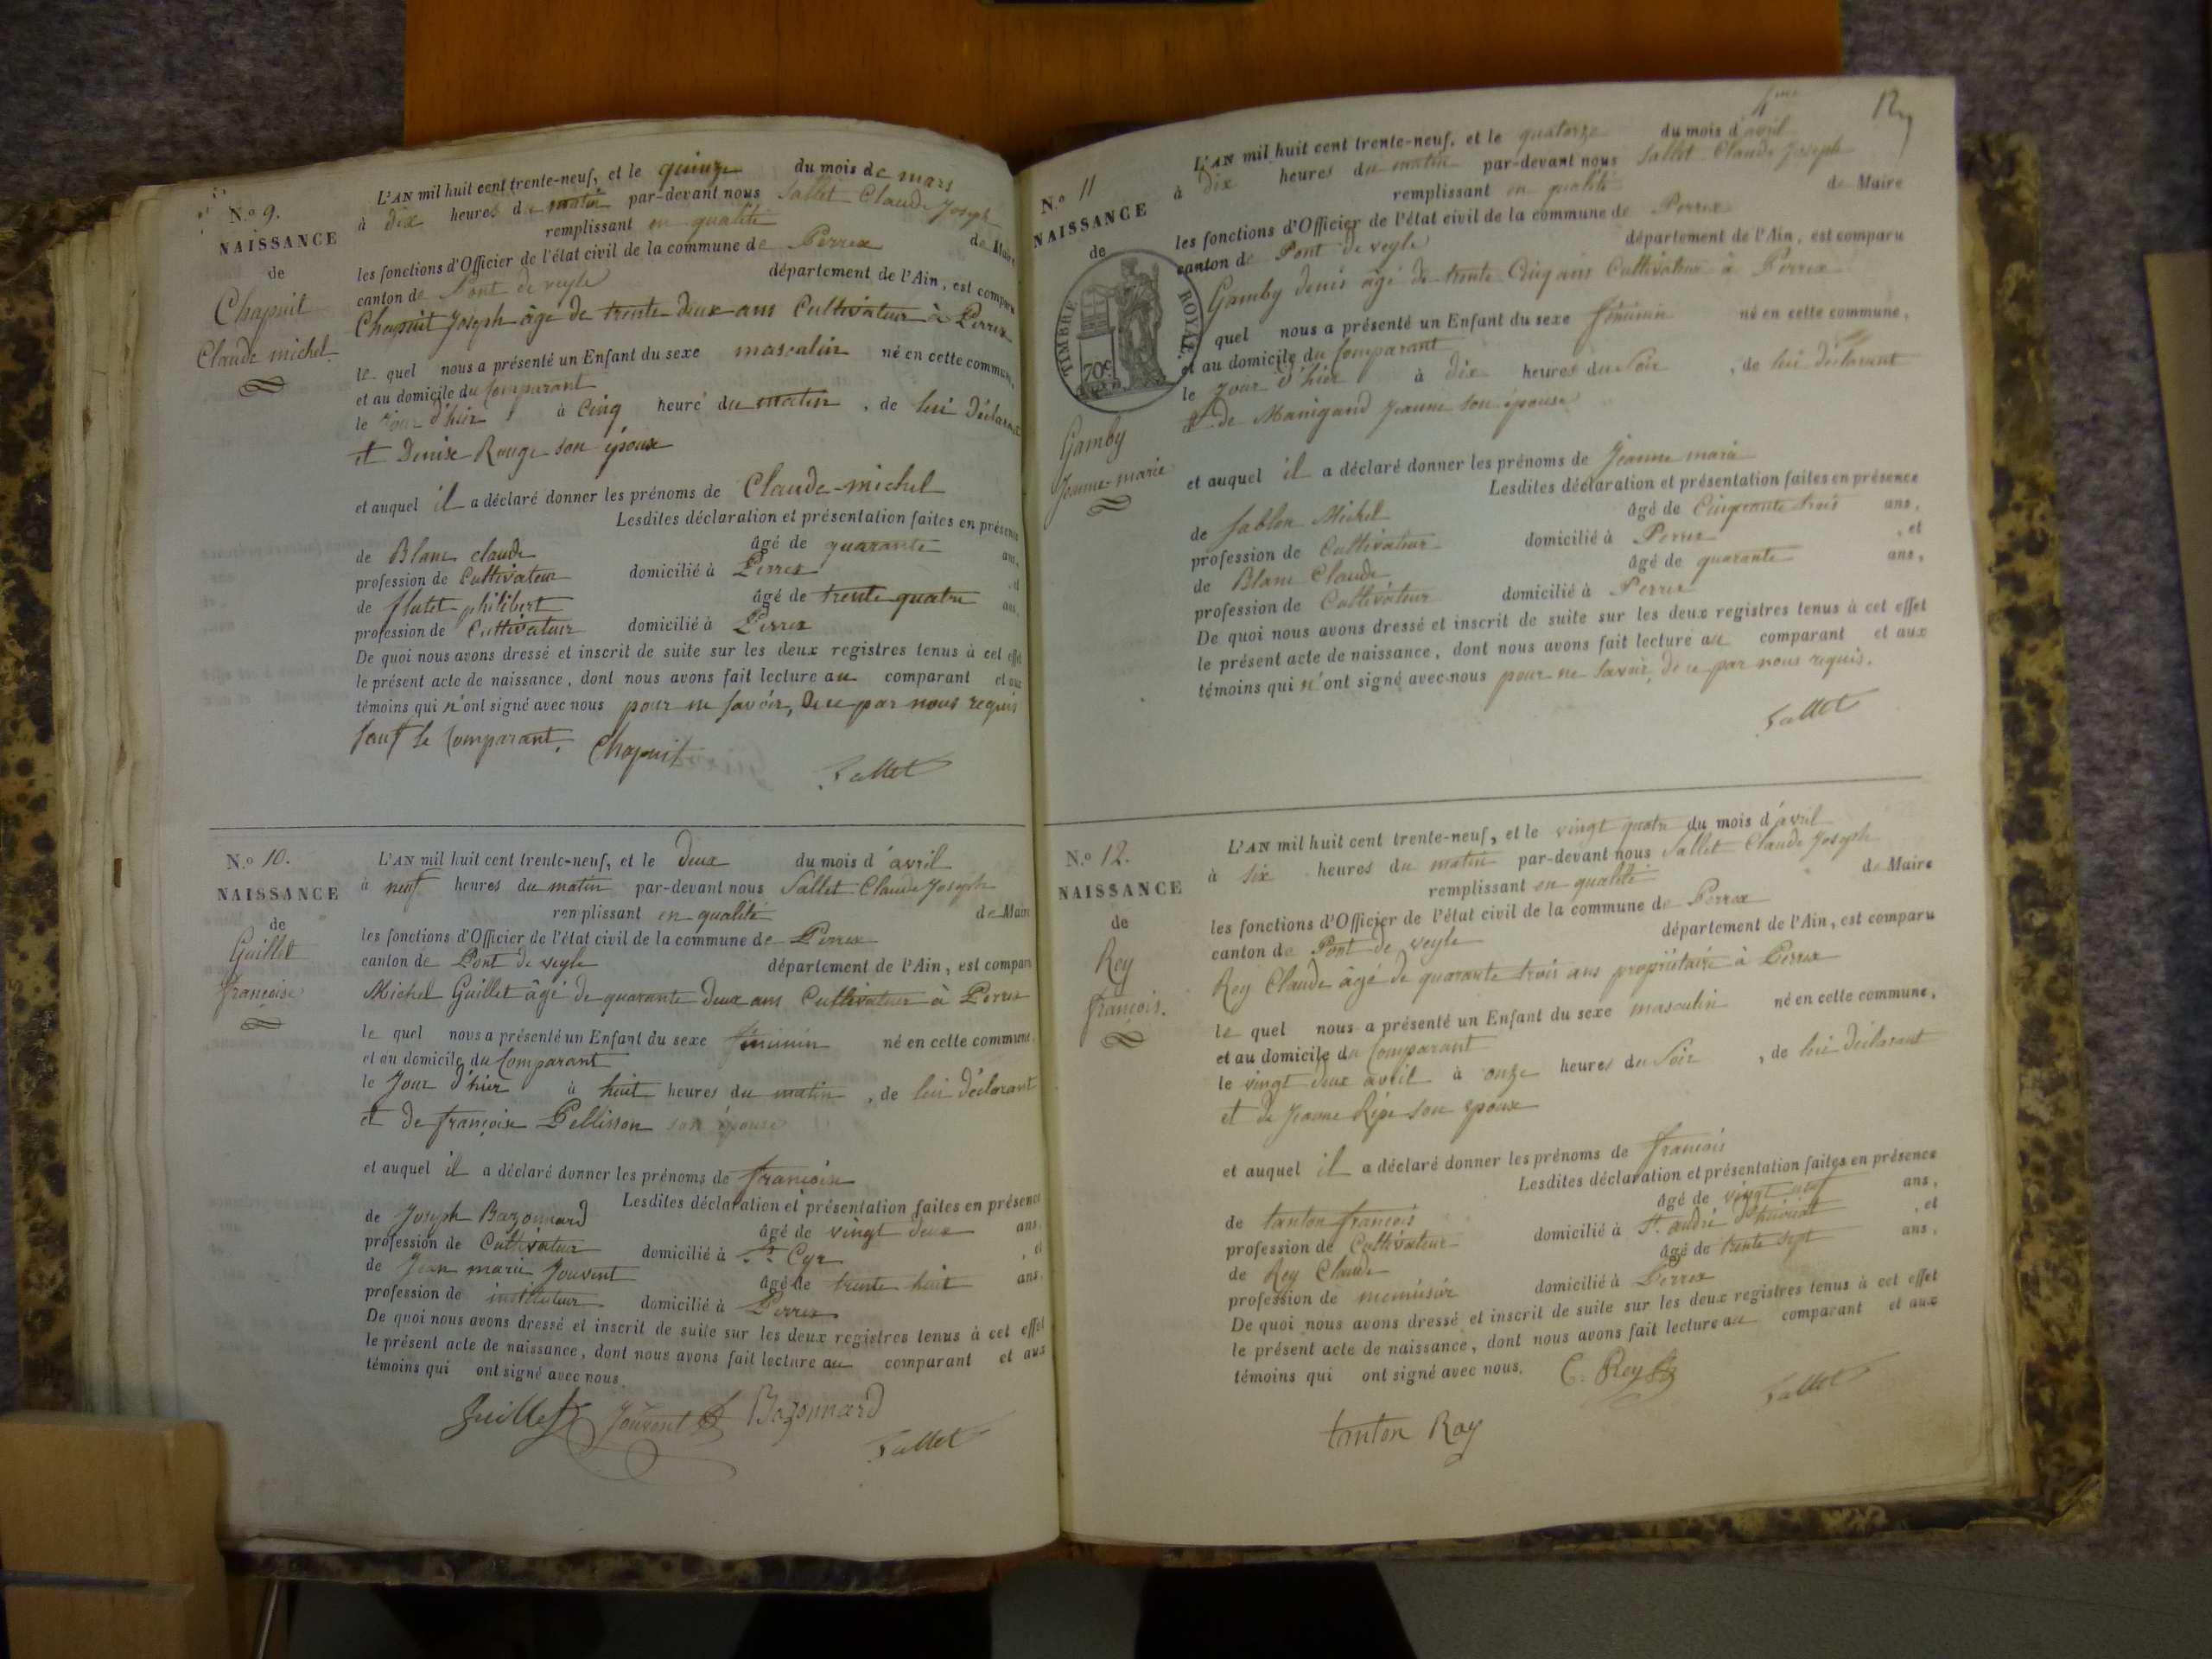 N.º 9.
NAISSANCE
de
Chapuit
Claude michel
L'AN mil huit cent trente-neuf, et le quinze du mois de mars
à dix heures du matin par-devant nous Sallet Claude Joseph
remplissant en qualité de Maire
les fonctions d'Officier de l'état civil de la commune de Perrex
canton de Pont de veyle département de l'Ain, est comparu
Chapuit Joseph âgé de trente deux ans Cultivateur à Perrex
le quel nous a présenté un Enfant du sexe masculin né en cette commune,
et au domicile du Comparant
le jour d'hier à Cinq heure du matin, de lui Déclarant
et Denise Rouge son épouse
et auquel il a déclaré donner les prénoms de Claude-michel
Lesdites déclaration et présentation faites en présence
de Blanc claude âgé de quarante ans,
profession de Cultivateur domicilié à Perrex, et
de flutet philibert âgé de trente quatre ans,
profession de Cultivateur domicilié à Perrex
De quoi nous avons dressé et inscrit de suite sur les deux registres tenus à cet effet
le présent acte de naissance, dont nous avons fait lecture au comparant et aux
témoins qui n'ont signé avec nous pour ne savoir, De ce par nous requis
sauf le Comparant. Chapuit
Sallet
N.º 10.
NAISSANCE
de
Guillet
françoise
L'AN mil huit cent trente-neuf, et le Deux du mois d'avril
à neuf heures du matin par-devant nous Sallet Claude Joseph
remplissant en qualité de Maire
les fonctions d'Officier de l'état civil de la commune de Perrex
canton de Pont de veyle département de l'Ain, est comparu
Michel Guillet âgé de quarante Deux ans Cultivateur à Perrex
le quel nous a présenté un Enfant du sexe feminin né en cette commune,
et au domicile du Comparant
le Jour d'hier à huit heures du matin, de lui déclarant
et de françoise Pellisson son épouse
et auquel il a déclaré donner les prénoms de françoise
Lesdites déclaration et présentation faites en présence
de Joseph Bazonnard âgé de vingt deux ans,
profession de Cultivateur domicilié à St Cyr, et
de Jean marie Jouvent âgé de trente huit ans,
profession de instituteur domicilié à Perrex
De quoi nous avons dressé et inscrit de suite sur les deux registres tenus à cet effet
le présent acte de naissance, dont nous avons fait lecture au comparant et aux
témoins qui ont signé avec nous.
Guillet Jouvent Bazonnard
Sallet
4me
N.º 11
NAISSANCE
de
TIMBRE ROYAL.
70c
Gamby
Jeanne-marie
L'AN mil huit cent trente-neuf, et le quatorze du mois d'avril
à dix heures du matin par-devant nous Sallet Claude Joseph
remplissant en qualité de Maire
les fonctions d'Officier de l'état civil de la commune de Perrex
canton de Pont de veyle département de l'Ain, est comparu
Gamby denis âgé de trente Cinq ans Cultivateur à Perrex
quel nous a présenté un Enfant du sexe féminin né en cette commune,
et au domicile du Comparant
le jour d'hier à dix heures du Soir, de lui déclarant
et de Manigand Jeanne son épouse
et auquel il a déclaré donner les prénoms de Jeanne marie
Lesdites déclaration et présentation faites en présence
de Sablon Michel âgé de Cinquante trois ans,
profession de Cultivateur domicilié à Perrex, et
de Blanc Claude âgé de quarante ans,
profession de Cultivateur domicilié à Perrex
De quoi nous avons dressé et inscrit de suite sur les deux registres tenus à cet effet
le présent acte de naissance, dont nous avons fait lecture au comparant et aux
témoins qui n'ont signé avec nous pour ne savoir, de ce par nous requis.
Sallet
N.º 12.
NAISSANCE
de
Rey
françois.
L'AN mil huit cent trente-neuf, et le vingt quatre du mois d'avril
à six heures du matin par-devant nous Sallet Claude Joseph
remplissant en qualité de Maire
les fonctions d'Officier de l'état civil de la commune de Perrex
canton de Pont de veyle département de l'Ain, est comparu
Rey Claude âgé de quarante trois ans propriétaire à Perrex
le quel nous a présenté un Enfant du sexe masculin né en cette commune,
et au domicile du Comparant
le vingt deux avril à onze heures du Soir, de lui déclarant
et de Jeanne Répe son épouse
et auquel il a déclaré donner les prénoms de françois
Lesdites déclaration et présentation faites en présence
de tanton françois âgé de vingt neuf ans,
profession de Cultivateur domicilié à St. andré d'huiriat, et
de Rey Claude âgé de trente sept ans,
profession de menuisier domicilié à Perrex
De quoi nous avons dressé et inscrit de suite sur les deux registres tenus à cet effet
le présent acte de naissance, dont nous avons fait lecture au comparant et aux
témoins qui ont signé avec nous. C. Rey
Sallet
tanton Ray